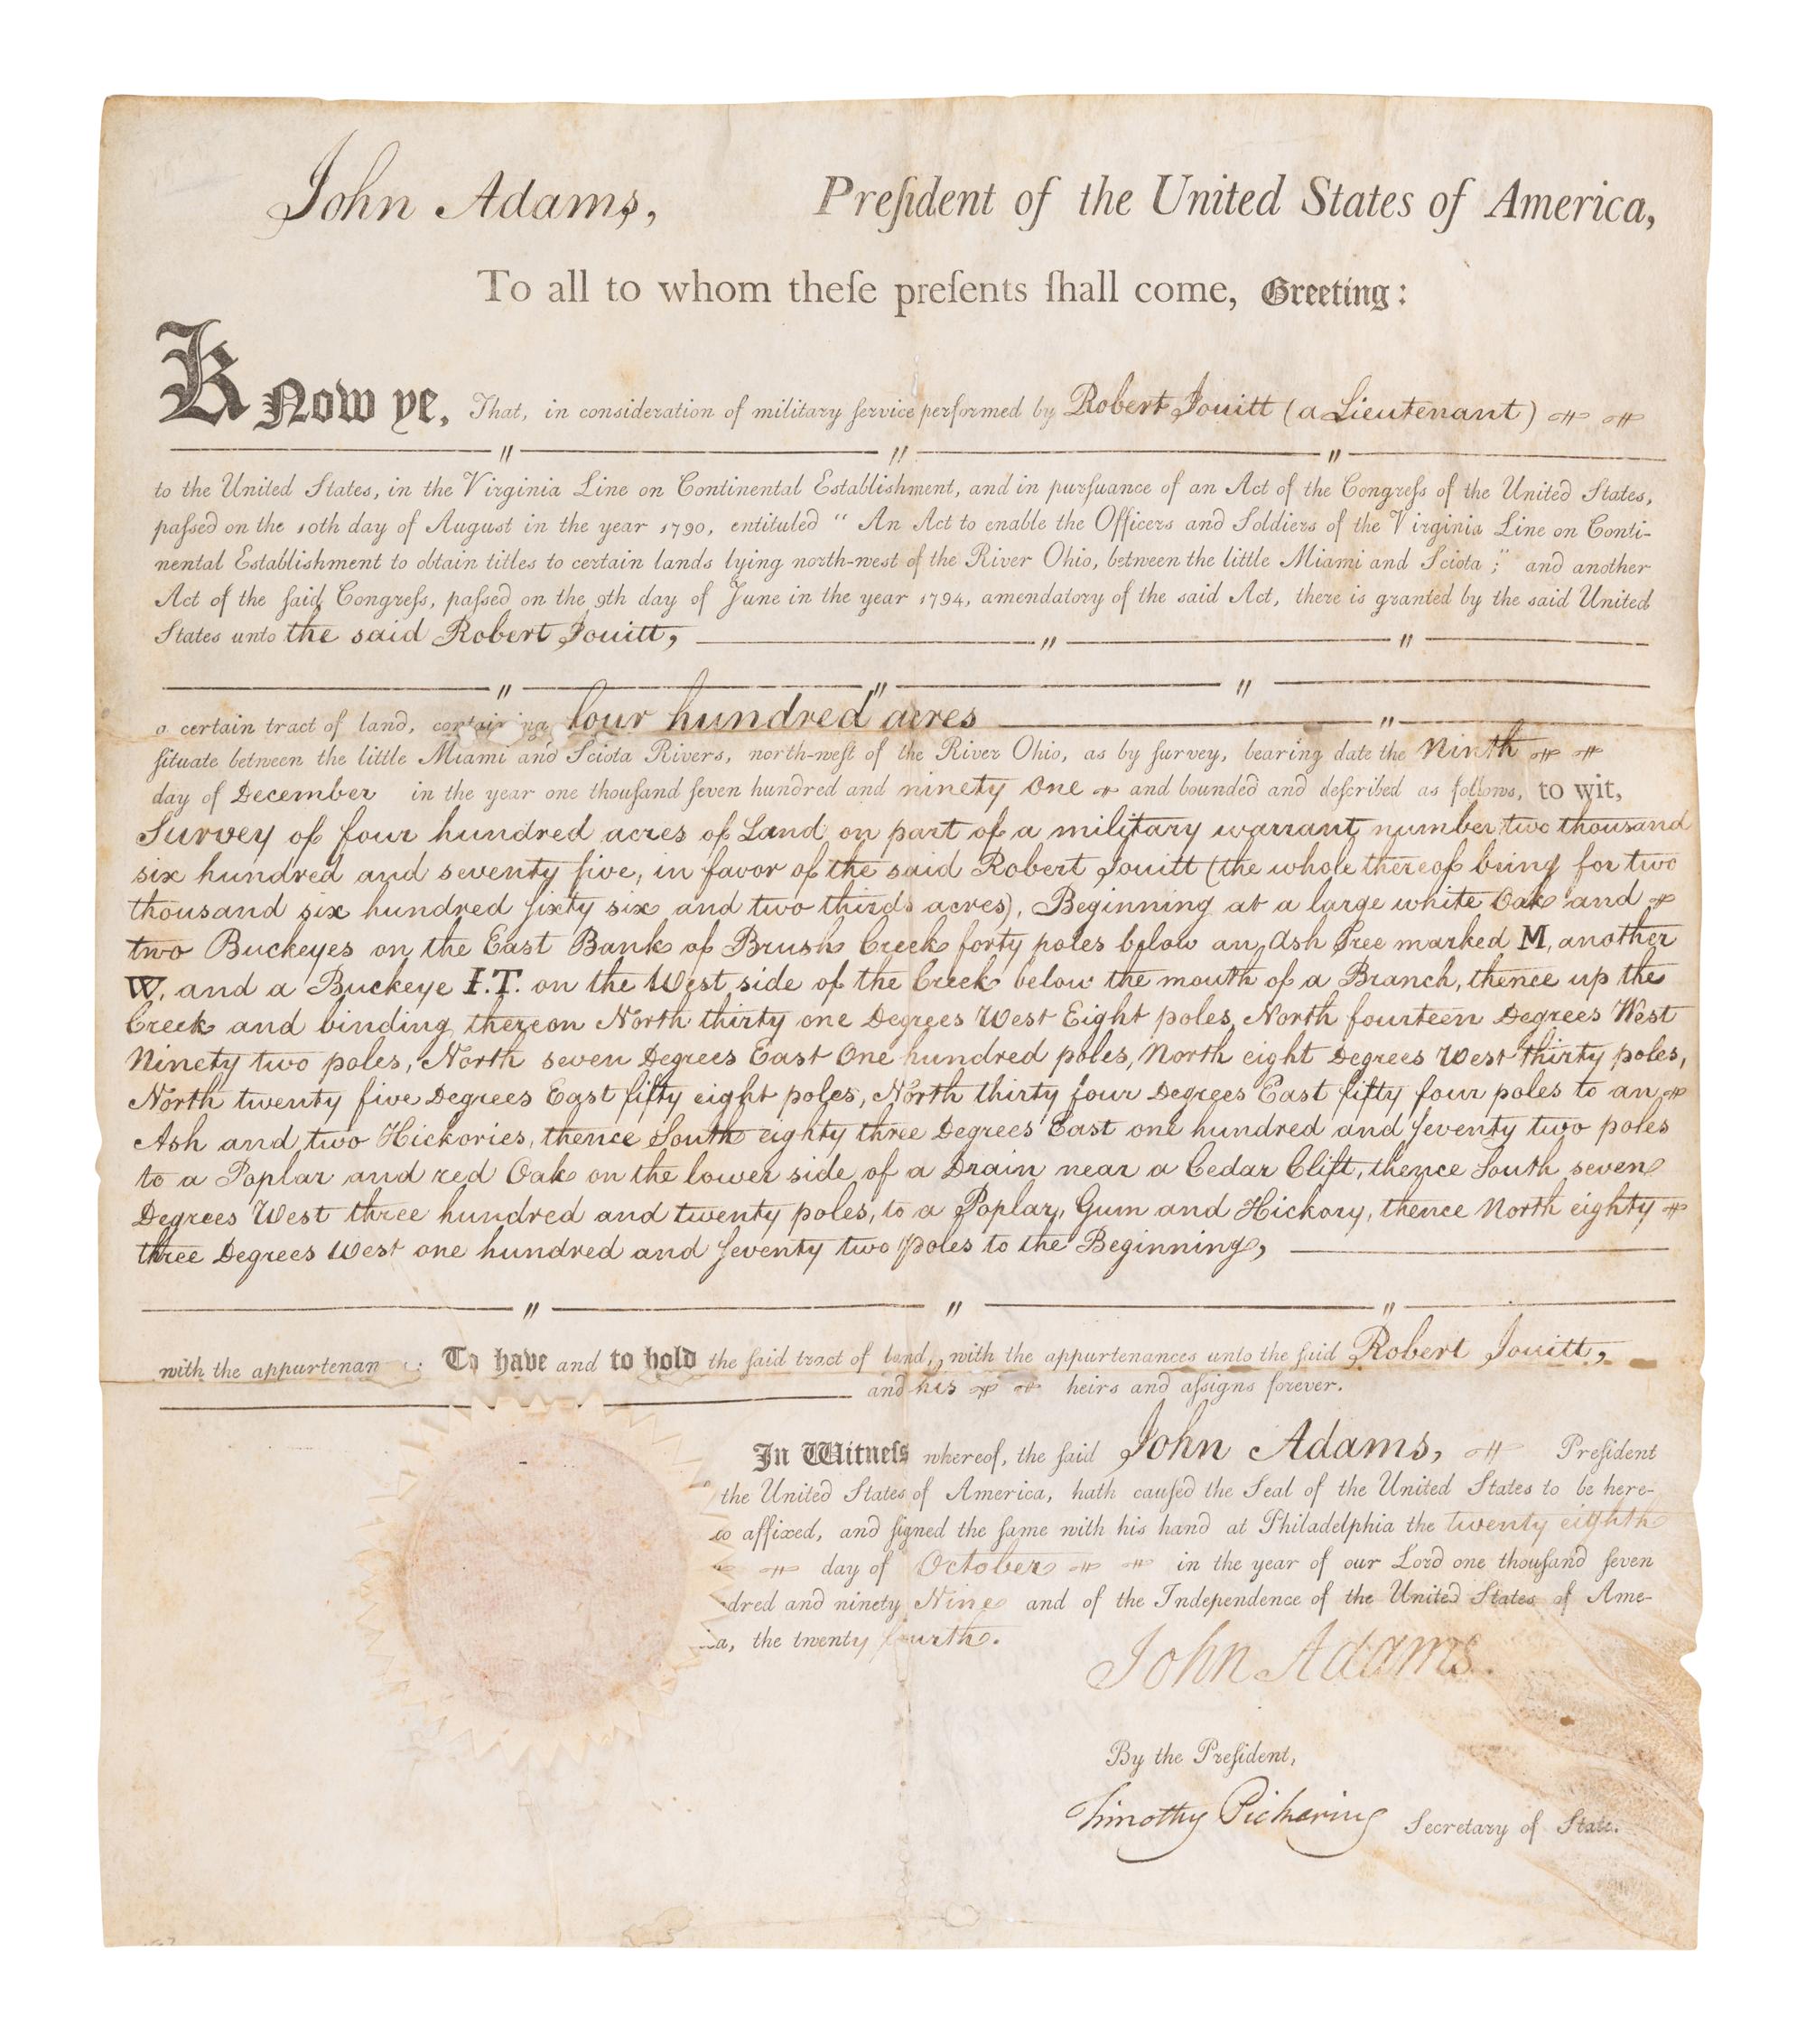 John Adams, Preſident of the United States of America,
To all to whom theſe preſents ſhall come, Greeting:
Know ye, That, in consideration of military ſervice performed by Robert Jouitt (a Lieutenant)
to the United States, in the Virginia Line on Continental Establishment, and in purſuance of an Act of the Congreſs of the United States,
paſſed on the 10th day of August in the year 1790, entituled " An Act to enable the Officers and Soldiers of the Virginia Line on Conti-
nental Establishment to obtain titles to certain lands lying north-west of the River Ohio, between the little Miami and Sciota ;" and another
Act of the ſaid Congreſs, paſſed on the 9th day of June in the year 1794, amendatory of the said Act, there is granted by the said United
States unto the said Robert Jouitt,
a certain tract of land, containing four hundred acres
ſituate between the little Miami and Sciota Rivers, north-weſt of the River Ohio, as by ſurvey, bearing date the Ninth
day of December in the year one thouſand ſeven hundred and ninety one and bounded and deſcribed as follows, to wit,
Survey of four hundred acres of Land on part of a military warrant number two thousand
six hundred and seventy five, in favor of the said Robert Jouitt (the whole thereof being for two
thousand six hundred sixty six and two thirds acres), Beginning at a large white Oak and
two Buckeyes on the East Bank of Brush Creek forty poles below an Ash Tree marked M, another
W. and a Buckeye I.T. on the West side of the Creek below the mouth of a Branch, thence up the
Creek and binding thereon North thirty one Degrees West Eight poles, North fourteen Degrees West
Ninety two poles, North seven Degrees East One hundred poles, North eight Degrees West thirty poles,
North twenty five Degrees East fifty eight poles, North thirty four Degrees East fifty four poles to an
Ash and two Hickories, thence South eighty three Degrees East one hundred and ſeventy two poles
to a Poplar and red Oak on the lower side of a Drain near a Cedar Clift, thence South seven
Degrees West three hundred and twenty poles, to a Poplar, Gum and Hickory, thence North eighty
three Degrees West one hundred and ſeventy two poles to the Beginning,
with the appurtenan To have and to hold the ſaid tract of land, with the appurtenances unto the ſaid Robert Jouitt,
and his heirs and aſſigns forever.
In Witneſs whereof, the ſaid John Adams, Preſident
the United States of America, hath cauſed the Seal of the United States to be here-
to affixed, and ſigned the ſame with his hand at Philadelphia the twenty eighth
day of October in the year of our Lord one thouſand ſeven
dred and ninety Nine and of the Independence of the United States of Ame-
a, the twenty fourth.
John Adams.
By the Preſident,
Timothy Pickering Secretary of State.